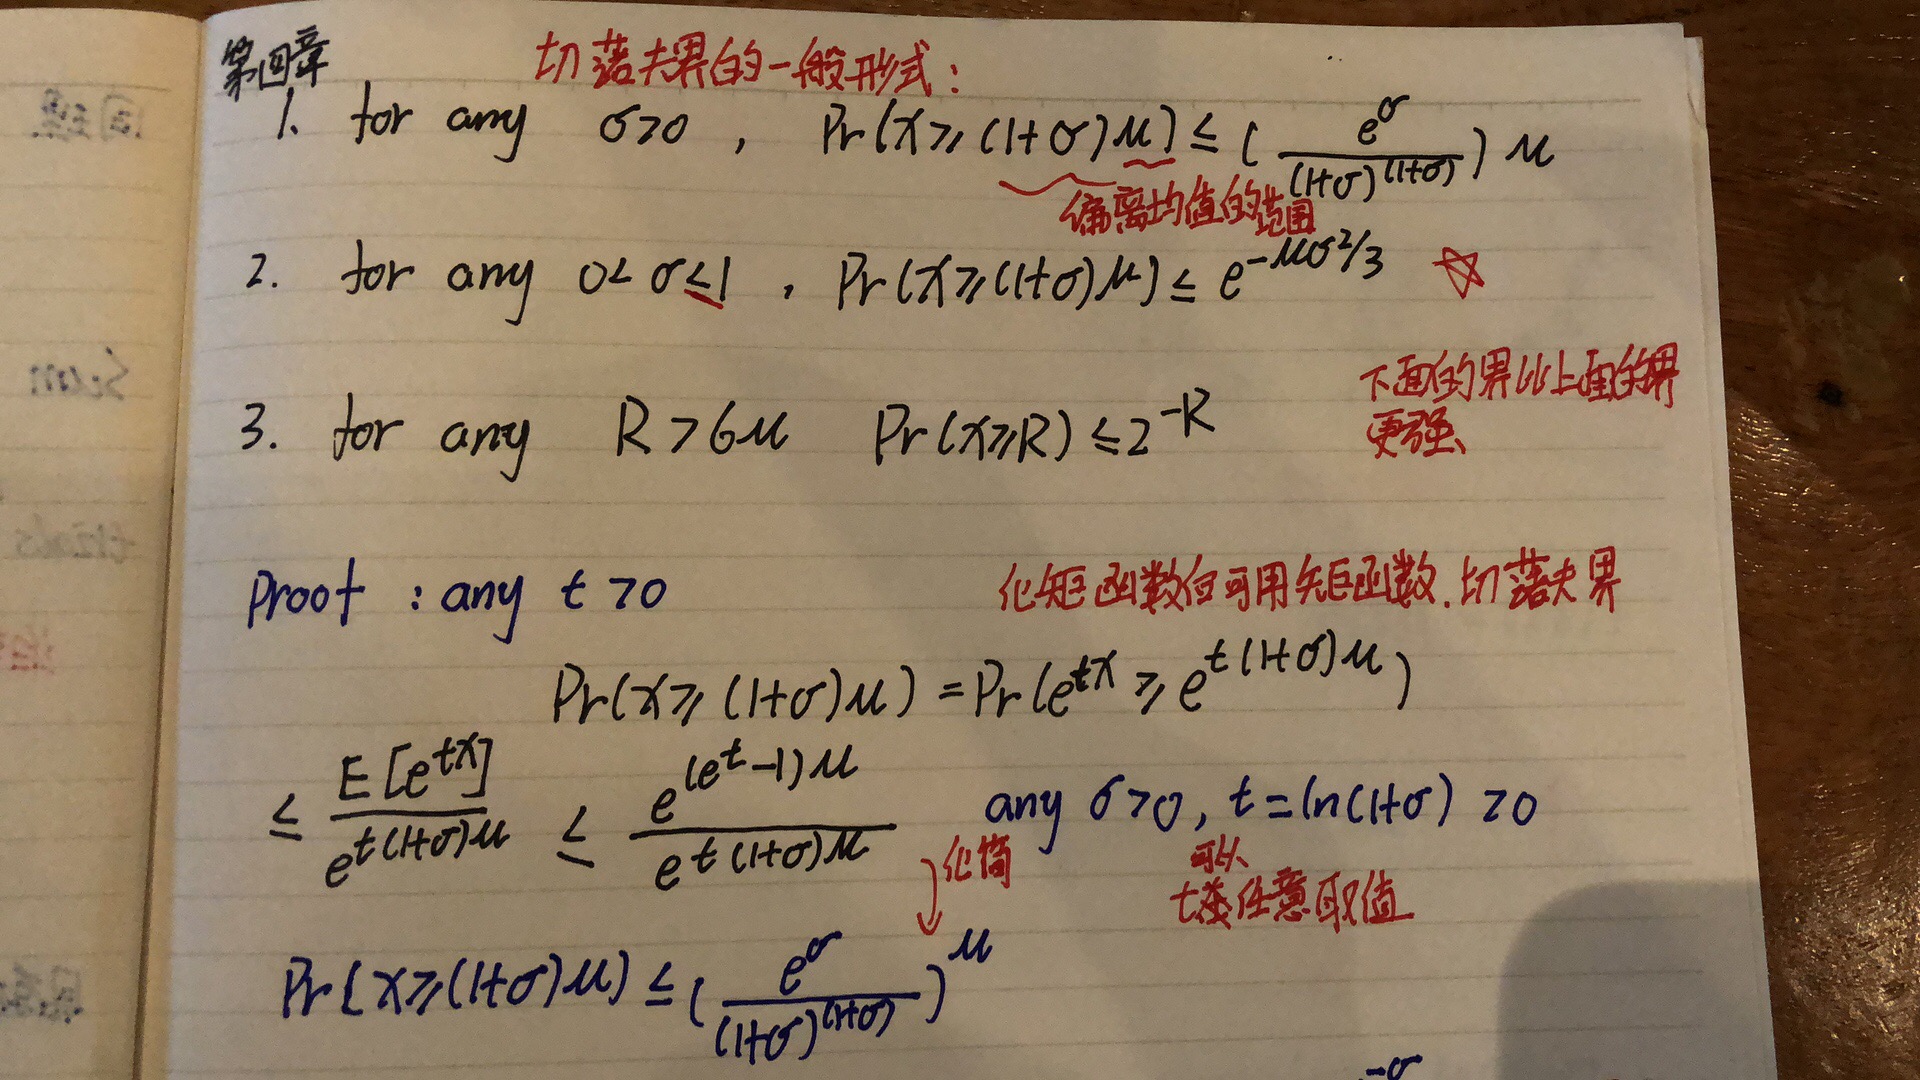 第四章
切诺夫界的一般形式:
1. for any σ>0, Pr(X≥(1+σ)μ) ≤ (e^σ/(1+σ)^(1+σ)) μ
偏离均值的范围
2. for any 0<σ≤1, Pr(X≥(1+σ)μ) ≤ e^-μσ²/3 ☆
下面的界比上面的界
更强
3. for any R>6μ Pr(X≥R) ≤ 2^-R
Proof: any t>0
矩函数 可用矩函数.切诺夫界
Pr(X≥(1+σ)μ) = Pr(e^tX ≥ e^t(1+σ)μ)
≤ E[e^tX]/e^t(1+σ)μ ≤ e^(e^t-1)μ/e^t(1+σ)μ any σ>0, t=ln(1+σ)>0
化简
可以
t 任意取值
Pr(X≥(1+σ)μ) ≤ (e^σ/(1+σ)^(1+σ))^μ
-σ